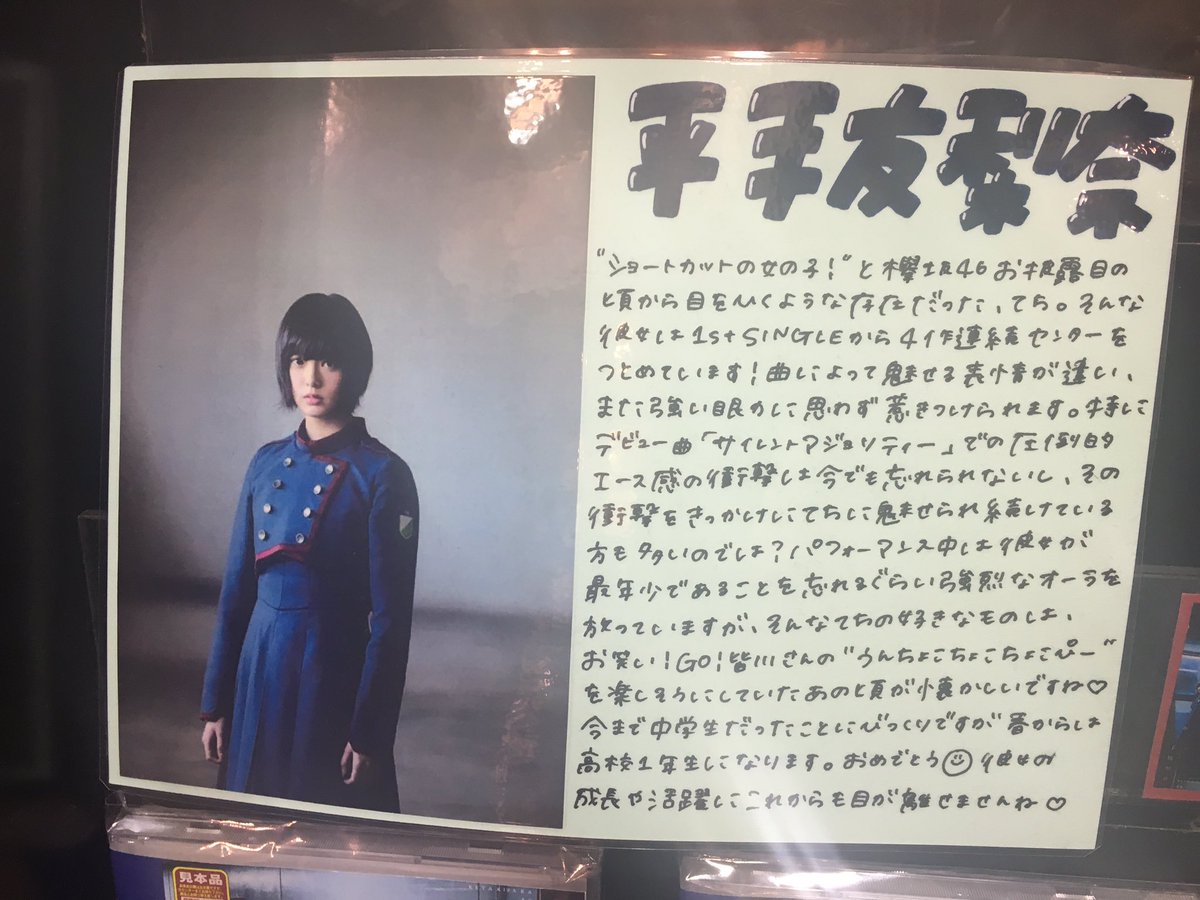 平手友梨奈
"ショートカットの女の子!"と欅坂46お披露目の
頃から目をひくような存在だった、てち。そんな
彼女は1st SINGLEから4作連続センターを
つとめています!曲によって魅せる表情が違い、
また強い眼力に思わず惹きつけられます。特に
デビュー曲「サイレントマジョリティー」での圧倒的
エース感の衝撃は今でも忘れられないし、その
衝撃をきっかけにてちに魅せられ続けている
方も多いのでは?パフォーマンス中は彼女が
最年少であることを忘れるぐらい強烈なオーラを
放っていますが、そんなてちの好きなものは、
お笑い!GO!皆川さんの"うんちょこちょこちょこぴー"
を楽しそうにしていたあの頃が懐かしいですね♡
今まで中学生だったことにびっくりですが春からは
高校1年生になります。おめでとう☺彼女の
成長や活躍にこれからも目が離せませんね♡
見本品
KEYAKIZAKA